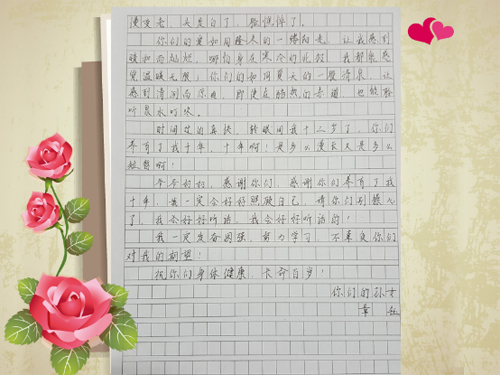 慢变老，头发白了，憔悴了。
你们的爱如同骄人的一缕阳光，让我感到
暖和而灿烂，哪怕身在寒冷的北极，我都感
觉温暖无限；你们的如同夏天的一股清泉，让
感到清润而凉爽，即使在酷热的赤道，也能聆
听泉水叮咚。
时间过的真快，转眼间我十二岁了，你们
养育了我十年，十年啊！是多么漫长又是多么
短暂啊！
爷爷奶奶，感谢你们，感谢你们养育了我
十年，我一定会好好照顾自己，请你们别担心
了，我会好好听话。我会好好听话的！
我一定发奋图强，努力学习，不辜负你们
对我的期望！
祝你们身体健康，长命百岁！
你们的孙子
章